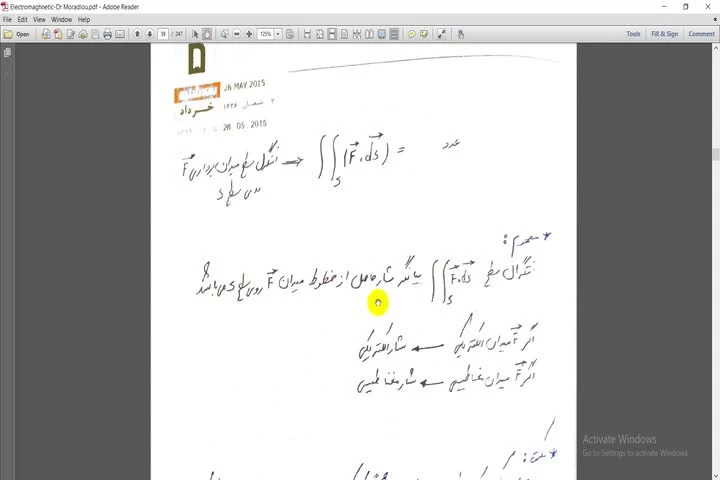 Electromaghnetic-Dr Moradlou.pdf - Adobe Reader
File Edit View Window Help
Open 59 / 247 125% Tools Fill & Sign Comment
26 MAY 2015
خرداد
28. 05. 2015
انتگرال سطح میدان برداری F⃗ → ∫∫_S (F⃗ . ds⃗) = عدد
روی سطح S
* مفهوم :
انتگرال سطح ∫∫_S F⃗.ds⃗ بیانگر شار حاصل از خطوط میدان F⃗ روی سطح S می باشد
اگر F⃗ میدان الکتریکی ← شار الکتریکی
اگر F⃗ میدان مغناطیسی ← شار مغناطیسی
* نکته :
Activate Windows
Go to Settings to activate Windows.